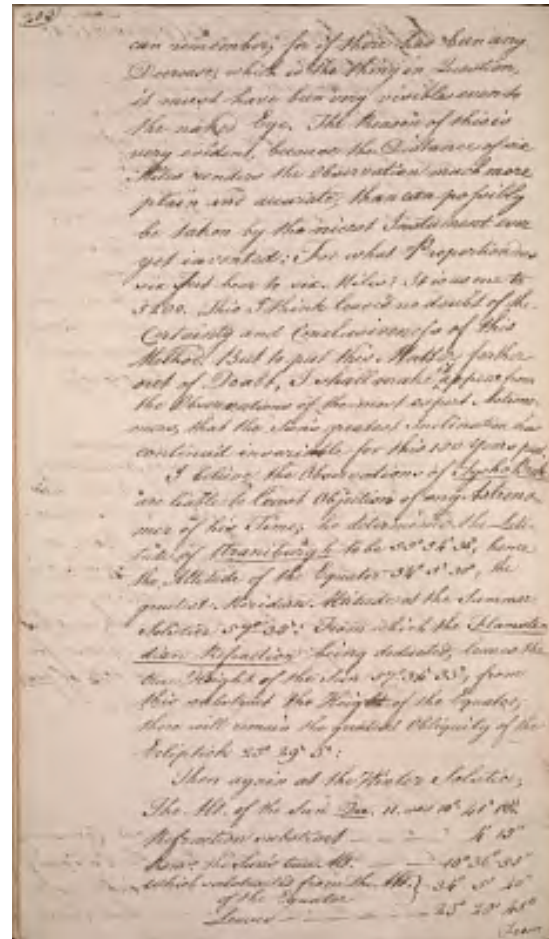 can remember; for if there has been any
Decrease, which is the thing in Question,
it must have been very visible even to
the naked Eye. The Reason of this is
very evident, because the Distance of six
Miles renders the Observation much more
plain and accurate, than can possibly
be taken by the nicest Instrument ever
yet invented: For what Proportion
six feet bear to six Miles? It is as one to
5200. This I think leaves no doubt of the
Certainty and Conclusiveness of this
Method. But to put this Matter farther
out of Doubt, I shall make appear from
the Observations of the most expert Astrono-
mers, that the Sun's greatest Inclination has
continued invariable for this 100 Years past.
I believe the Observations of Tycho Brahe
are liable to least Objection of any Astrono-
mer of his Time; he determines the Lati-
tude of Uraniburgh to be 55° 54' hence
the Altitude of the Equator 34° 5' the
greatest Meridian Altitude at the Summer
Solstice From which the Flamstee-
dian Refraction being deducted, leaves the
true Height of the Sun 57° 34' 35", from
this substract the Height of the Equator,
there will remain the greatest Obliquity of the
Ecliptick 23° 29' 5":
Then again at the Winter Solstice,
The Alt. of the Sun Dec. 11. was 10° 41'
Refraction substract
leaves the Sun's true Alt. 10° 36'
Which substracted from the Alt. 34° 5'
of the Equator
Leaves